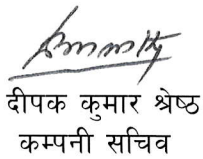 दीपक कुमार श्रेष्ठ
कम्पनी सचिव